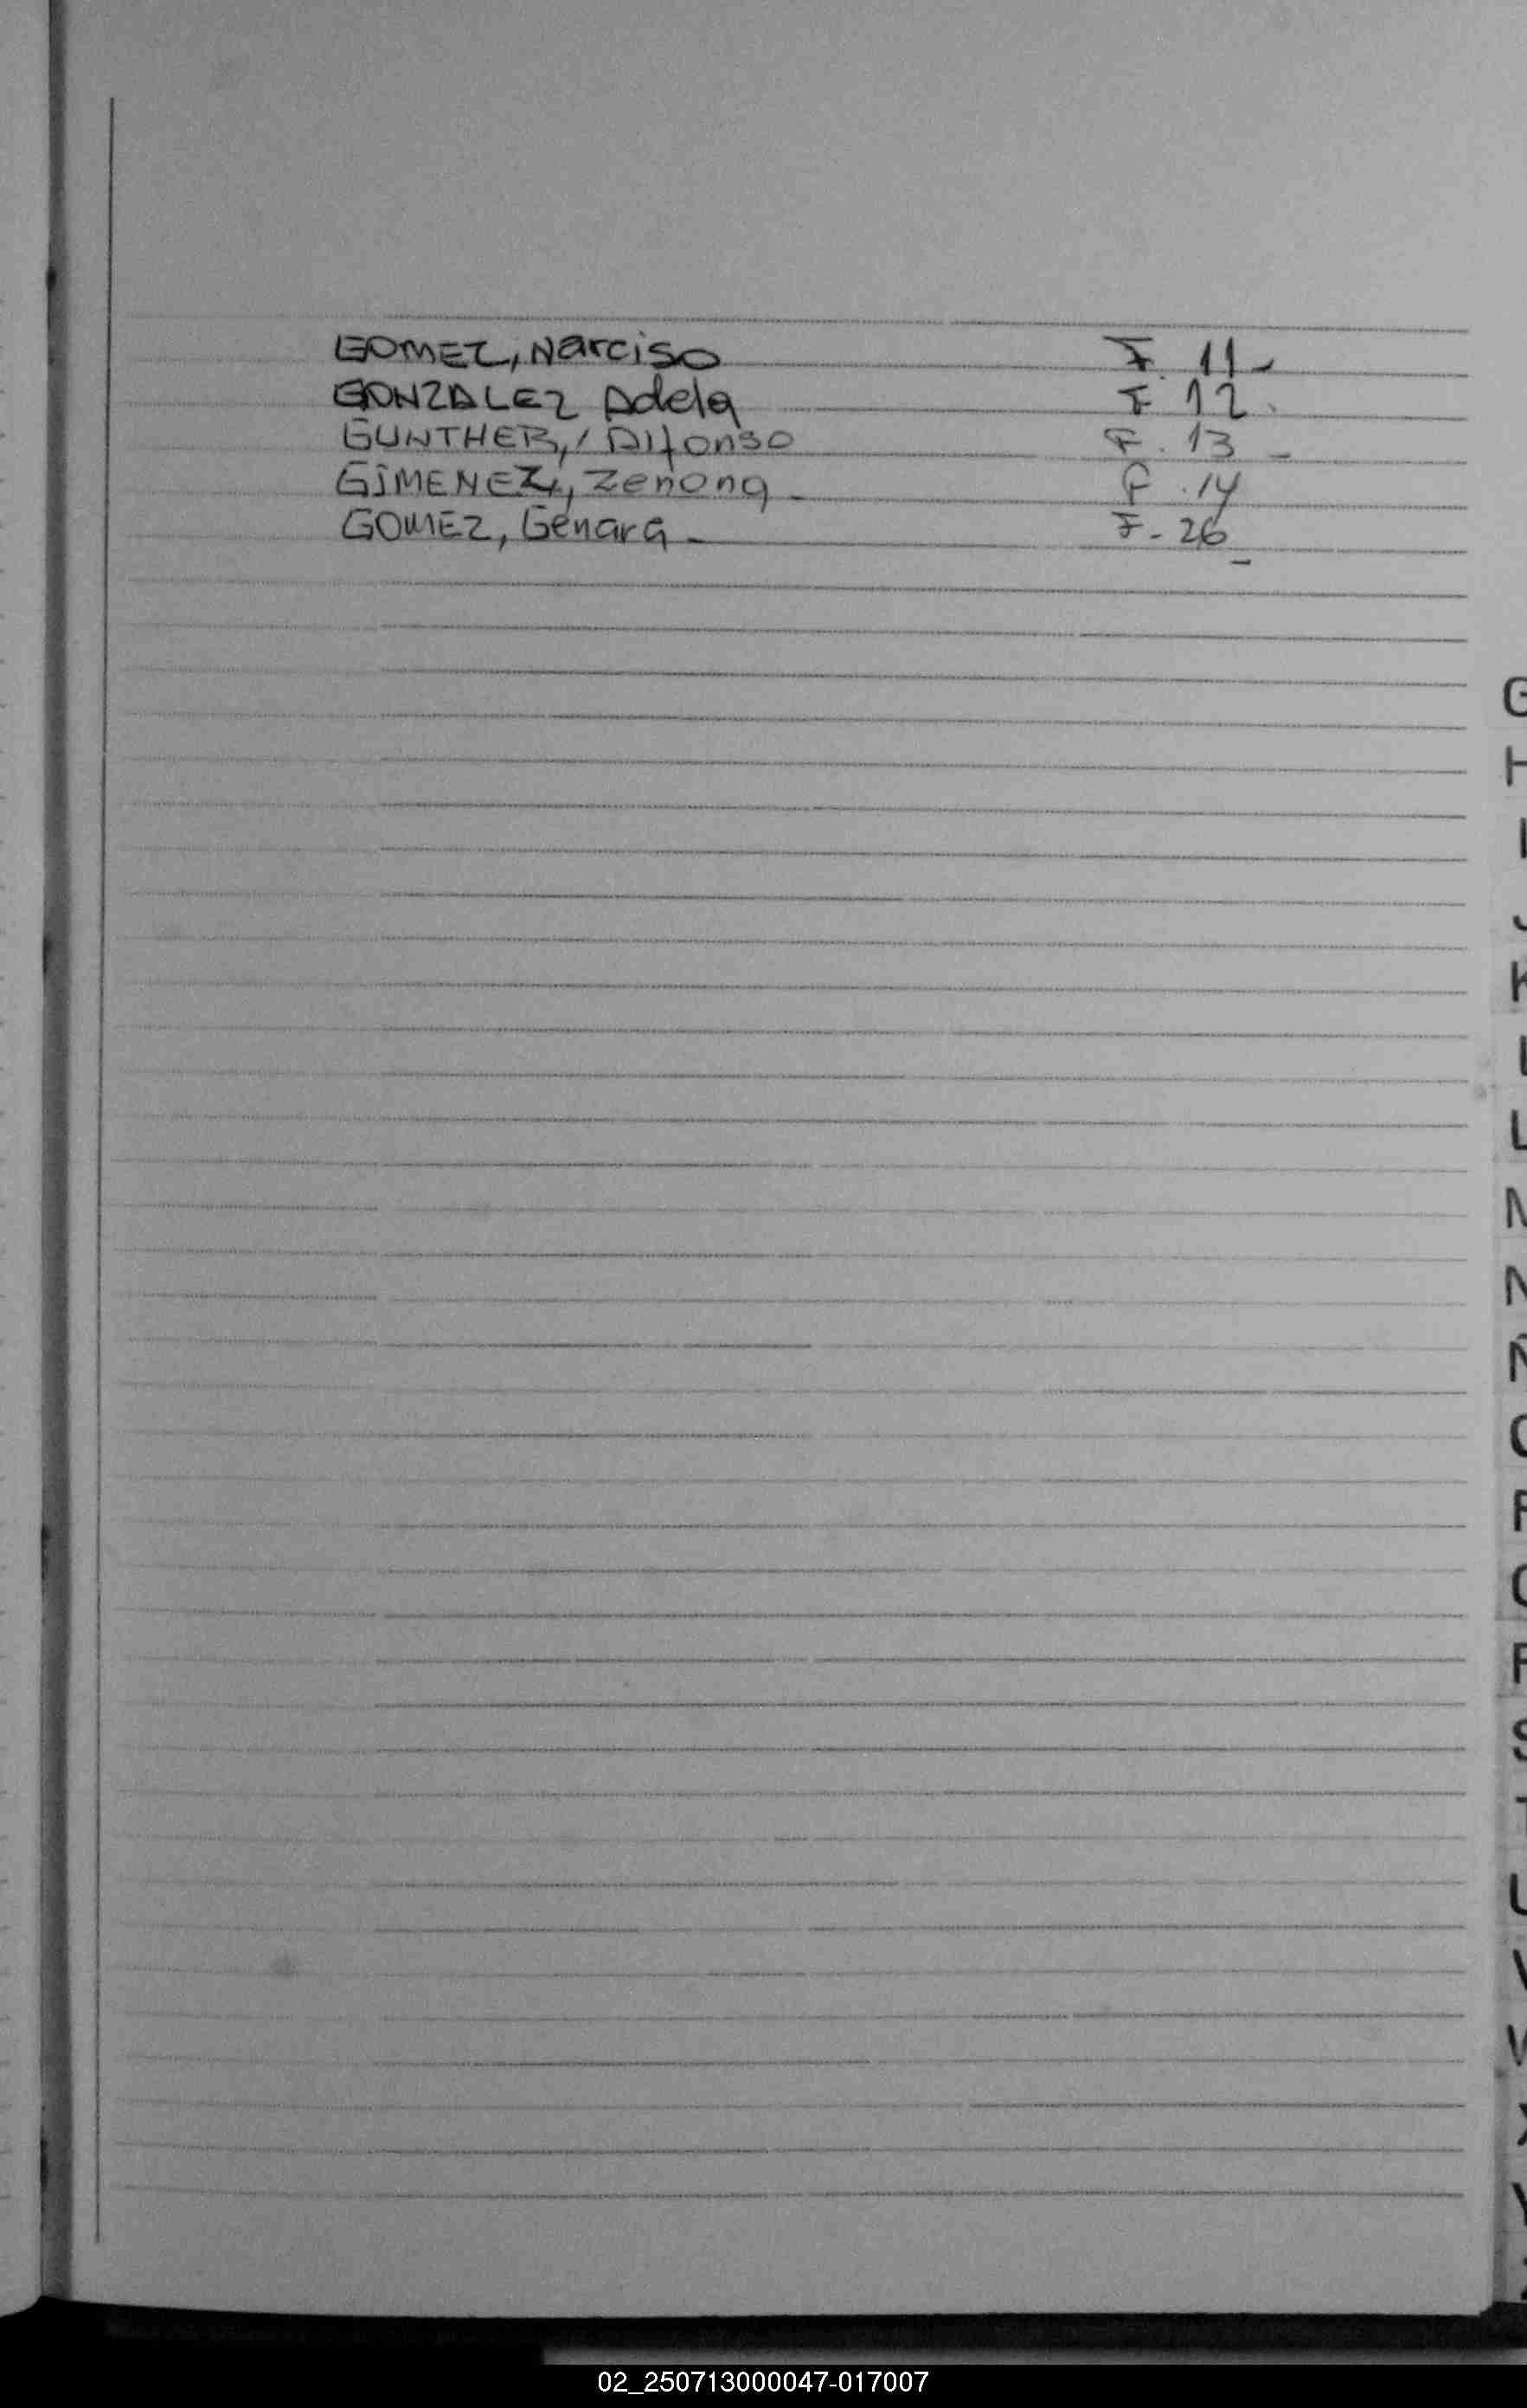 GOMEZ, Narciso F. 11-
GONZALEZ Adela F 12.
GUNTHER, Alfonso F. 13-
GIMENEZ, Zenona - F. 14
GOMEZ, Genara - F- 26-
G
H
I
J
K
L
L
M
N
Ñ
O
P
Q
R
S
T
U
V
W
X
Y
Z
02_250713000047-017007